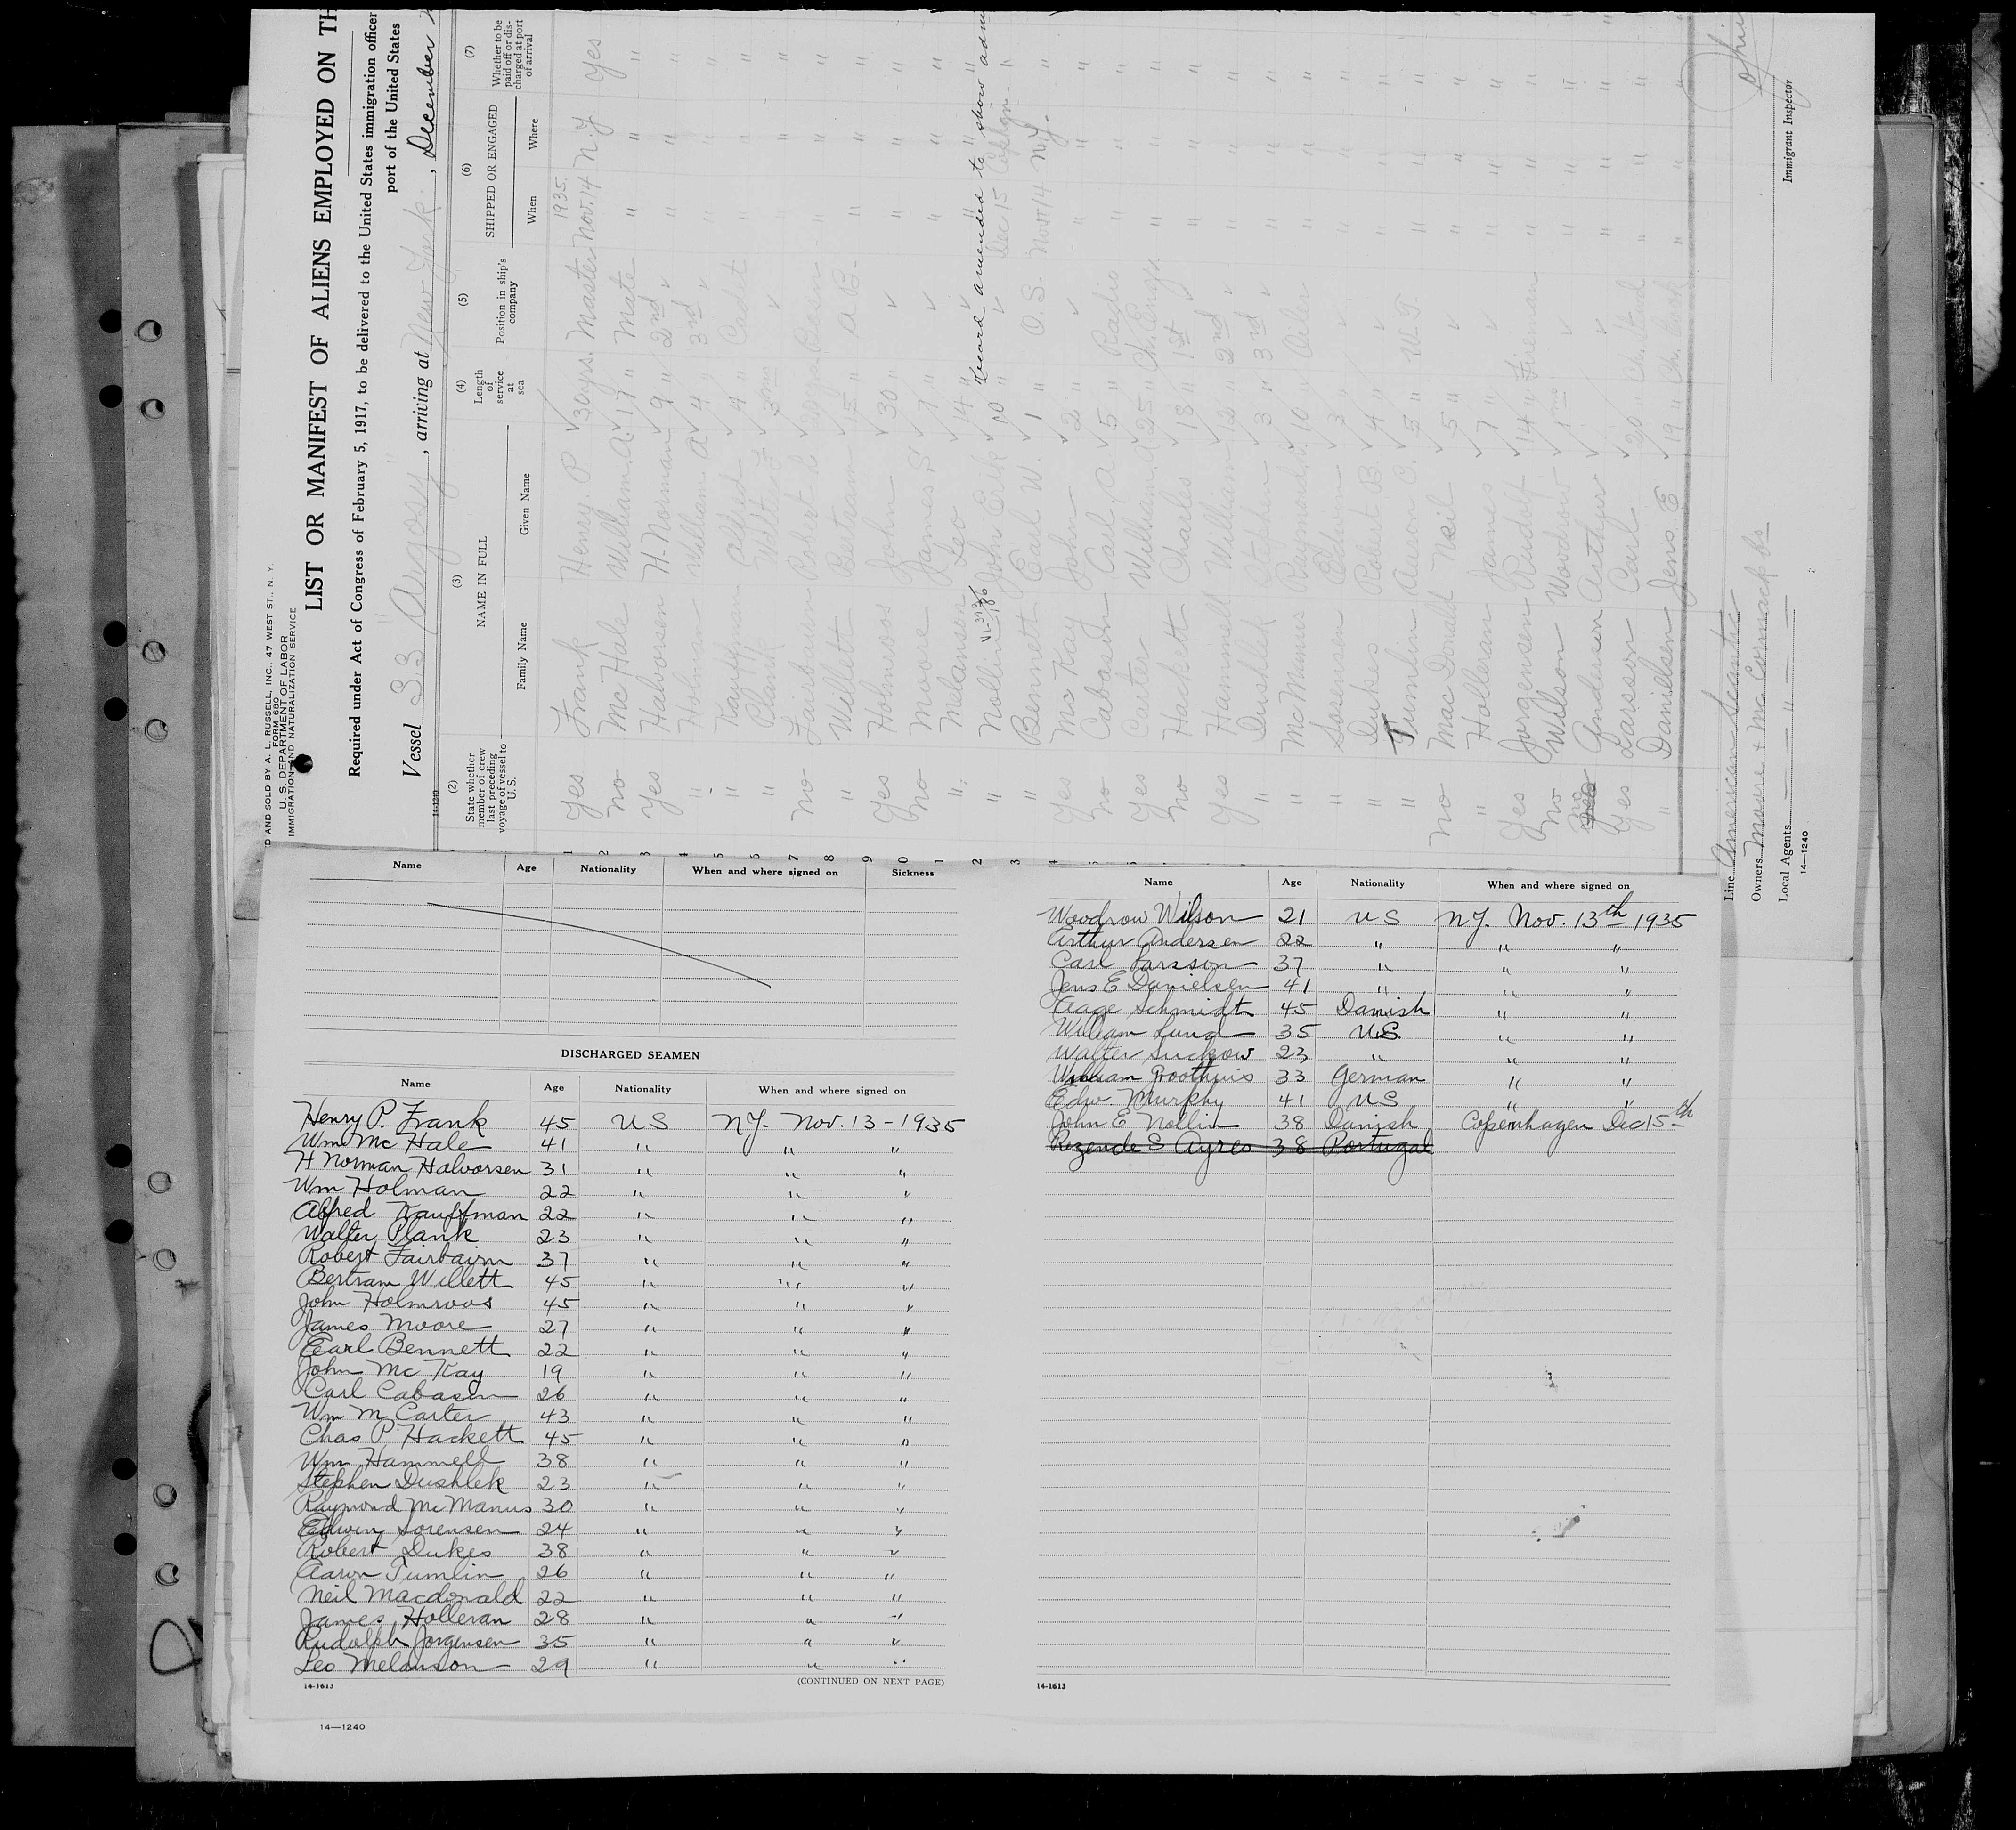 D AND SOLD BY A. L. RUSSELL, INC., 47 WEST ST., N. Y.
FORM 680
U. S. DEPARTMENT OF LABOR
IMMIGRATION AND NATURALIZATION SERVICE
LIST OR MANIFEST OF ALIENS EMPLOYED ON TH
Required under Act of Congress of February 5, 1917, to be delivered to the United States immigration officer
port of the United States
Vessel S.S. "Argosy", arriving at New York, December
14-1240
(2) (3) (4) (5) (6) (7)
State whether member of crew last preceding voyage of vessel to U. S. NAME IN FULL Length of service at sea Position in ship's company SHIPPED OR ENGAGED Whether to be paid off or discharged at port of arrival
Family Name Given Name When Where
1935
1 Yes Frank Henry P 30 yrs. Master Nov. 14 N.Y Yes
2 No Mc Hale William A. 17 " Mate " " "
3 Yes Halvorsen H. Norman 9 " 2nd " " " "
4 " Holman William A 4 " 3rd " " " "
5 " Kauffman Alfred 4 " Cadet " " "
6 " Plank Walter " " " "
7 No Robert " " "
8 " Willett Bertram 15 " A.B. " " "
9 Yes Holmroos John 30 " " " " "
0 No Moore James S. 7 " " " " "
1 " Melanson Leo 14 " " " " "
Record amended to show adm
2 " Nolin John Erik 20 " " Dec 15 Cophgn "
3 " Bennett Earl W. 1 " O.S. Nov 14 N.Y. "
4 Yes Mc Kay John 2 " " " " "
No Cabason Carl A 5 " Radio " " "
Yes Carter William 25 " Ch. Engr. " " "
No Hackett Charles 18 " 1st " " " "
Yes Hamill William 12 " 2nd " " " "
" Dushlek Stephen 3 " 3rd " " " "
" Mc Manus Raymond 10 " Oiler " " "
" Sorensen Edwin 3 " " " " "
" Dukes Robert B. 4 " " " " "
" Tumlin Aaron C. 5 " W.T " " "
No Mac Donald Neil 5 " " " " "
" Holleran James 7 " " " " "
Yes Jorgensen Rudolf 14 " Fireman " " "
No Wilson Woodrow 1 mo " " " "
No Anderson Arthur " " " "
Yes Larsson Carl 20 " " " "
" Danielsen Jens E 19 " " " "
Line American Scantic
Owners Moore & Mc Cormack Co
Local Agents " "
14-1240
Immigrant Inspector
Name Age Nationality When and where signed on Sickness
DISCHARGED SEAMEN
Name Age Nationality When and where signed on
Henry P. Frank 45 US N.Y. Nov. 13-1935
Wm Mc Hale 41 " " "
H Norman Halvorsen 31 " " "
Wm Holman 22 " " "
Alfred Kauffman 22 " " "
Walter Plank 23 " " "
Robert Fairbairn 37 " " "
Bertram Willett 45 " " "
John Holmroos 45 " " "
James Moore 27 " " "
Earl Bennett 22 " " "
John Mc Kay 19 " " "
Carl Cabason 26 " " "
Wm M Carter 43 " " "
Chas P. Hackett 45 " " "
Wm Hammell 38 " " "
Stephen Dushlek 23 " " "
Raymond Mc Manus 30 " " "
Edwin Sorensen 24 " " "
Robert Dukes 38 " " "
Aaron Tumlin 26 " " "
Neil Macdonald 22 " " "
James Holleran 28 " " "
Rudolph Jorgensen 35 " " "
Leo Melanson 29 " " "
14-1613
(CONTINUED ON NEXT PAGE)
14—1240
Name Age Nationality When and where signed on
Woodrow Wilson 21 US N.Y. Nov. 13th 1935
Arthur Andersen 22 " " "
Carl Larsson 37 " " "
Jens E Danielsen 41 " " "
Aage Schmidt 45 Danish " "
William Lund 35 U.S. " "
Walter Suckow 23 " " "
William Groothuis 33 German " "
Edw. Murphy 41 US " "
John E Nollin 38 Danish Copenhagen Dec 15th
Rezende S Ayres 38 Portugal
14-1613